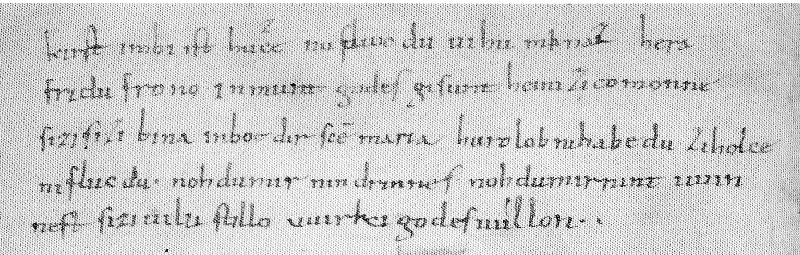 kirst imbi ist hucze nu fliuc du uihu minaz hera
fridu frono in munt godes gisunt heim zi comonne
sizi sizi bina inbot dir sc̄e maria hurolob nihabe du ziholce
ni fluc du· noh du mir nindrinnes noh du mir nintuuin
nest sizi uilu stillo uuirki godes uuillon··